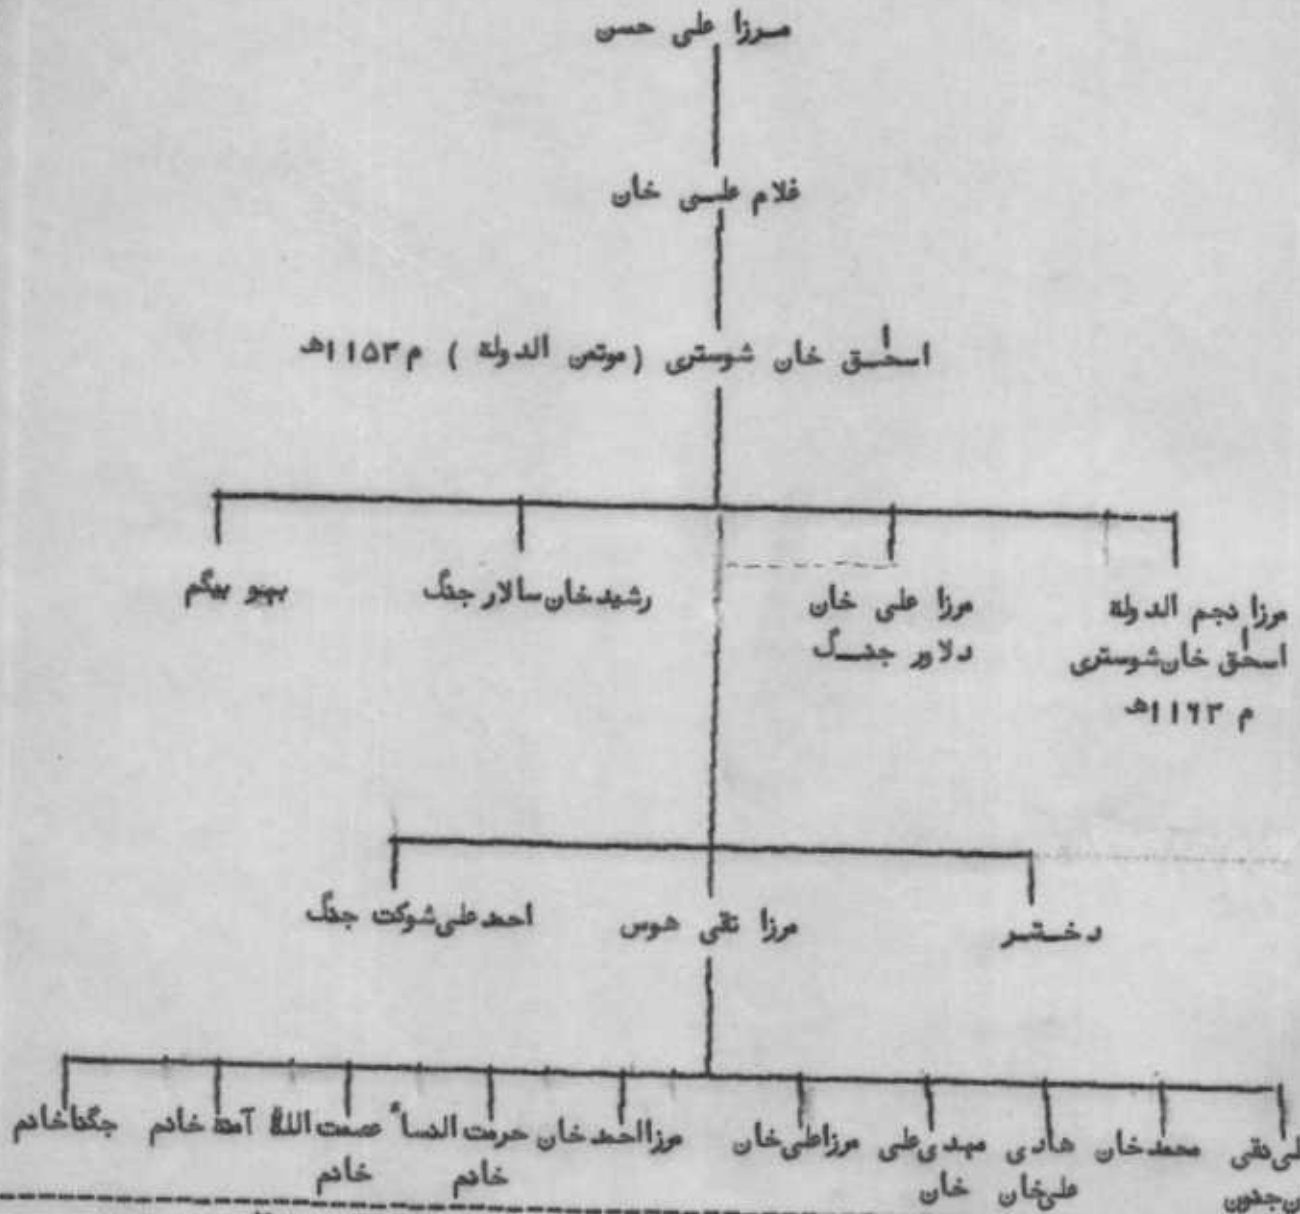 مرزا علی حسن
غلام علی خان
اسحٰق خان شوستری (موتمن الدولة) م ۱۱۵۳ھ
مرزا نجم الدولة
اسحٰق خان شوستری
م ۱۱۶۳ھ
مرزا علی خان
دلاور جنگ
رشید خان سالار جنگ
بہو بیگم
دختر
مرزا تقی ھوس
احمد علی شوکت جنگ
نقی
محمد خان
ھادی
علی خان
مہدی علی
خان
مرزا علی خان
مرزا احمد خان
حرمت النساء
خانم
عصمت اللہ
خانم
آمنة خانم
خانم